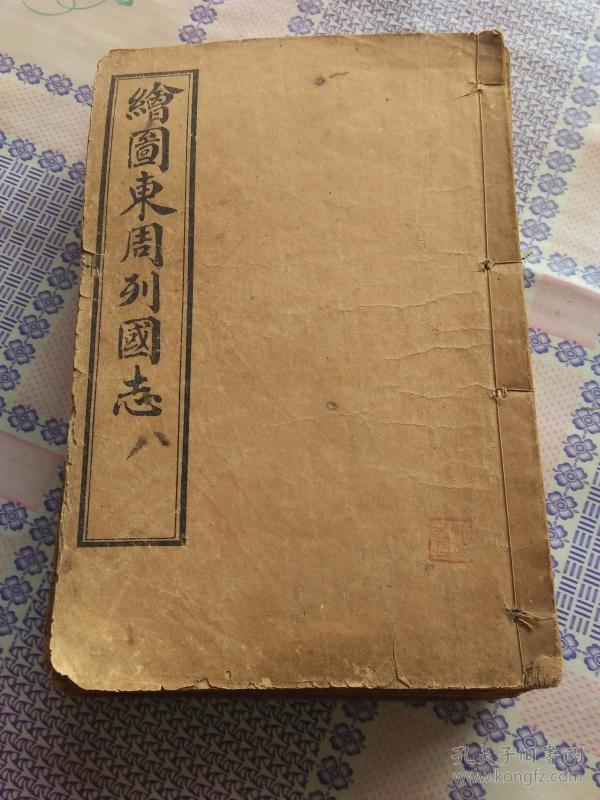 繪圖東周列國志 八
孔夫子旧书网
www.kongfz.com